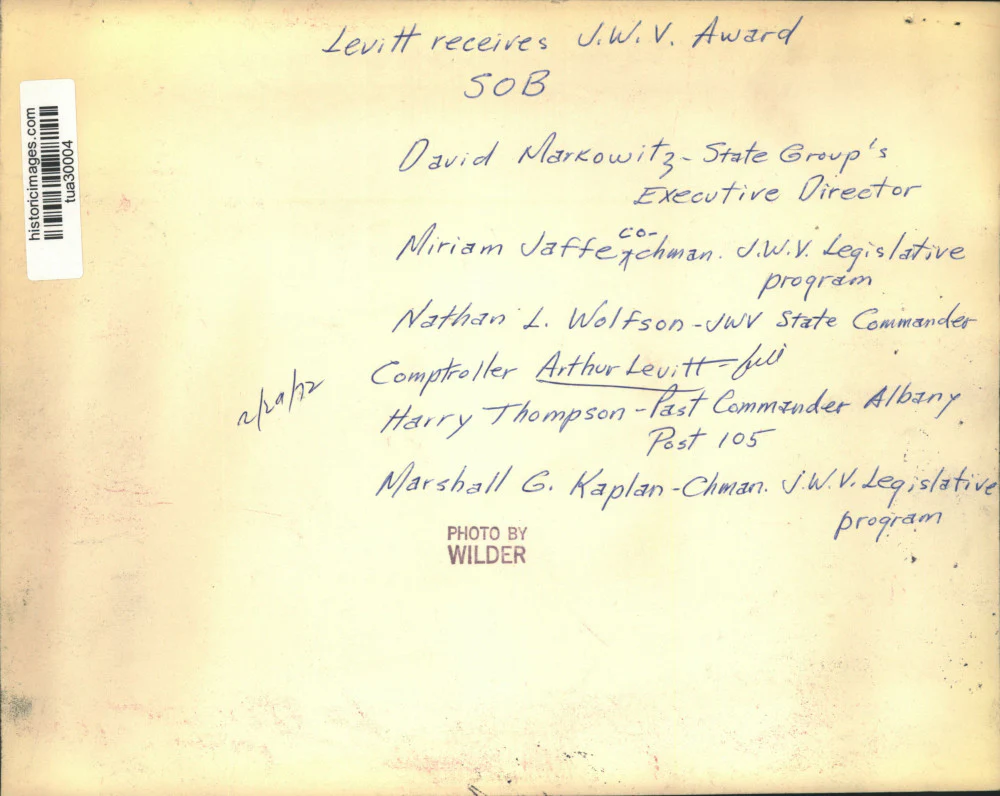 Levitt receives J.W.V. Award
SOB
historicimages.com
tua30004
David Markowitz - State Group's
Executive Director
Miriam Jaffe, co-chman. J.W.V. Legislative
program
Nathan L. Wolfson - JWV State Commander
Comptroller Arthur Levitt -
2/29/72
Harry Thompson - Past Commander Albany
Post 105
Marshall G. Kaplan - Chman. J.W.V. Legislative
program
PHOTO BY
WILDER